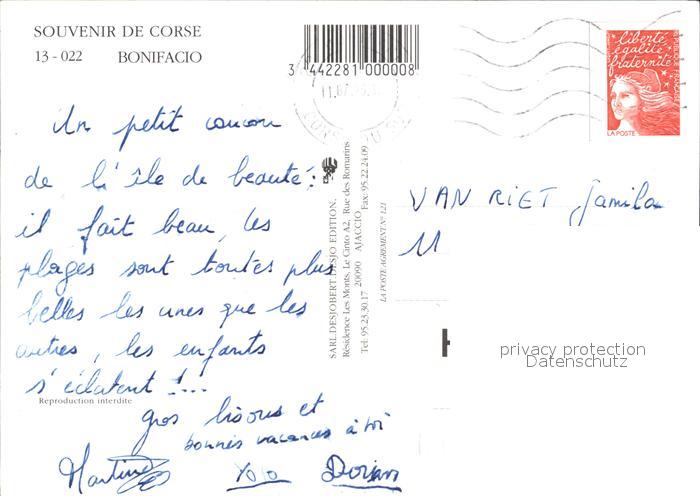 SOUVENIR DE CORSE
13 - 022 BONIFACIO
3 442281 000008
liberté
égalité
fraternité
RÉPUBLIQUE FRANÇAISE
LA POSTE
Un petit coucou
de l'île de beauté :
il fait beau, les
plages sont toutes plus
belles les unes que les
autres, les enfants
s'éclatent !...
Reproduction interdite
gros bisous et
bonnes vacances à toi
Martine Yoyo Dorian
SARL DESJOBERT DESJO EDITION.
Résidence Les Monts. Le Cinto A2. Rue des Romarins
20090 AJACCIO
Tel: 95.23.30.17 Fax: 95 22.24.09
LA POSTE AGREMENT N° 121
VAN RIET Jamila
11
privacy protection
Datenschutz